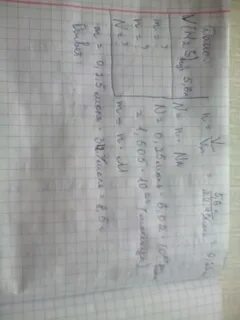 Дано:
V(H₂S) = 5,6л
m = ?
n = ?
N = ?
n = V/Vm = 5,6л
N = n · NA
N = 0,25моль · 6,02 · 10²³
= 1,505 · 10²³
m = n · M
m = 0,25моль · 34г/моль = 8,5г
Ответ